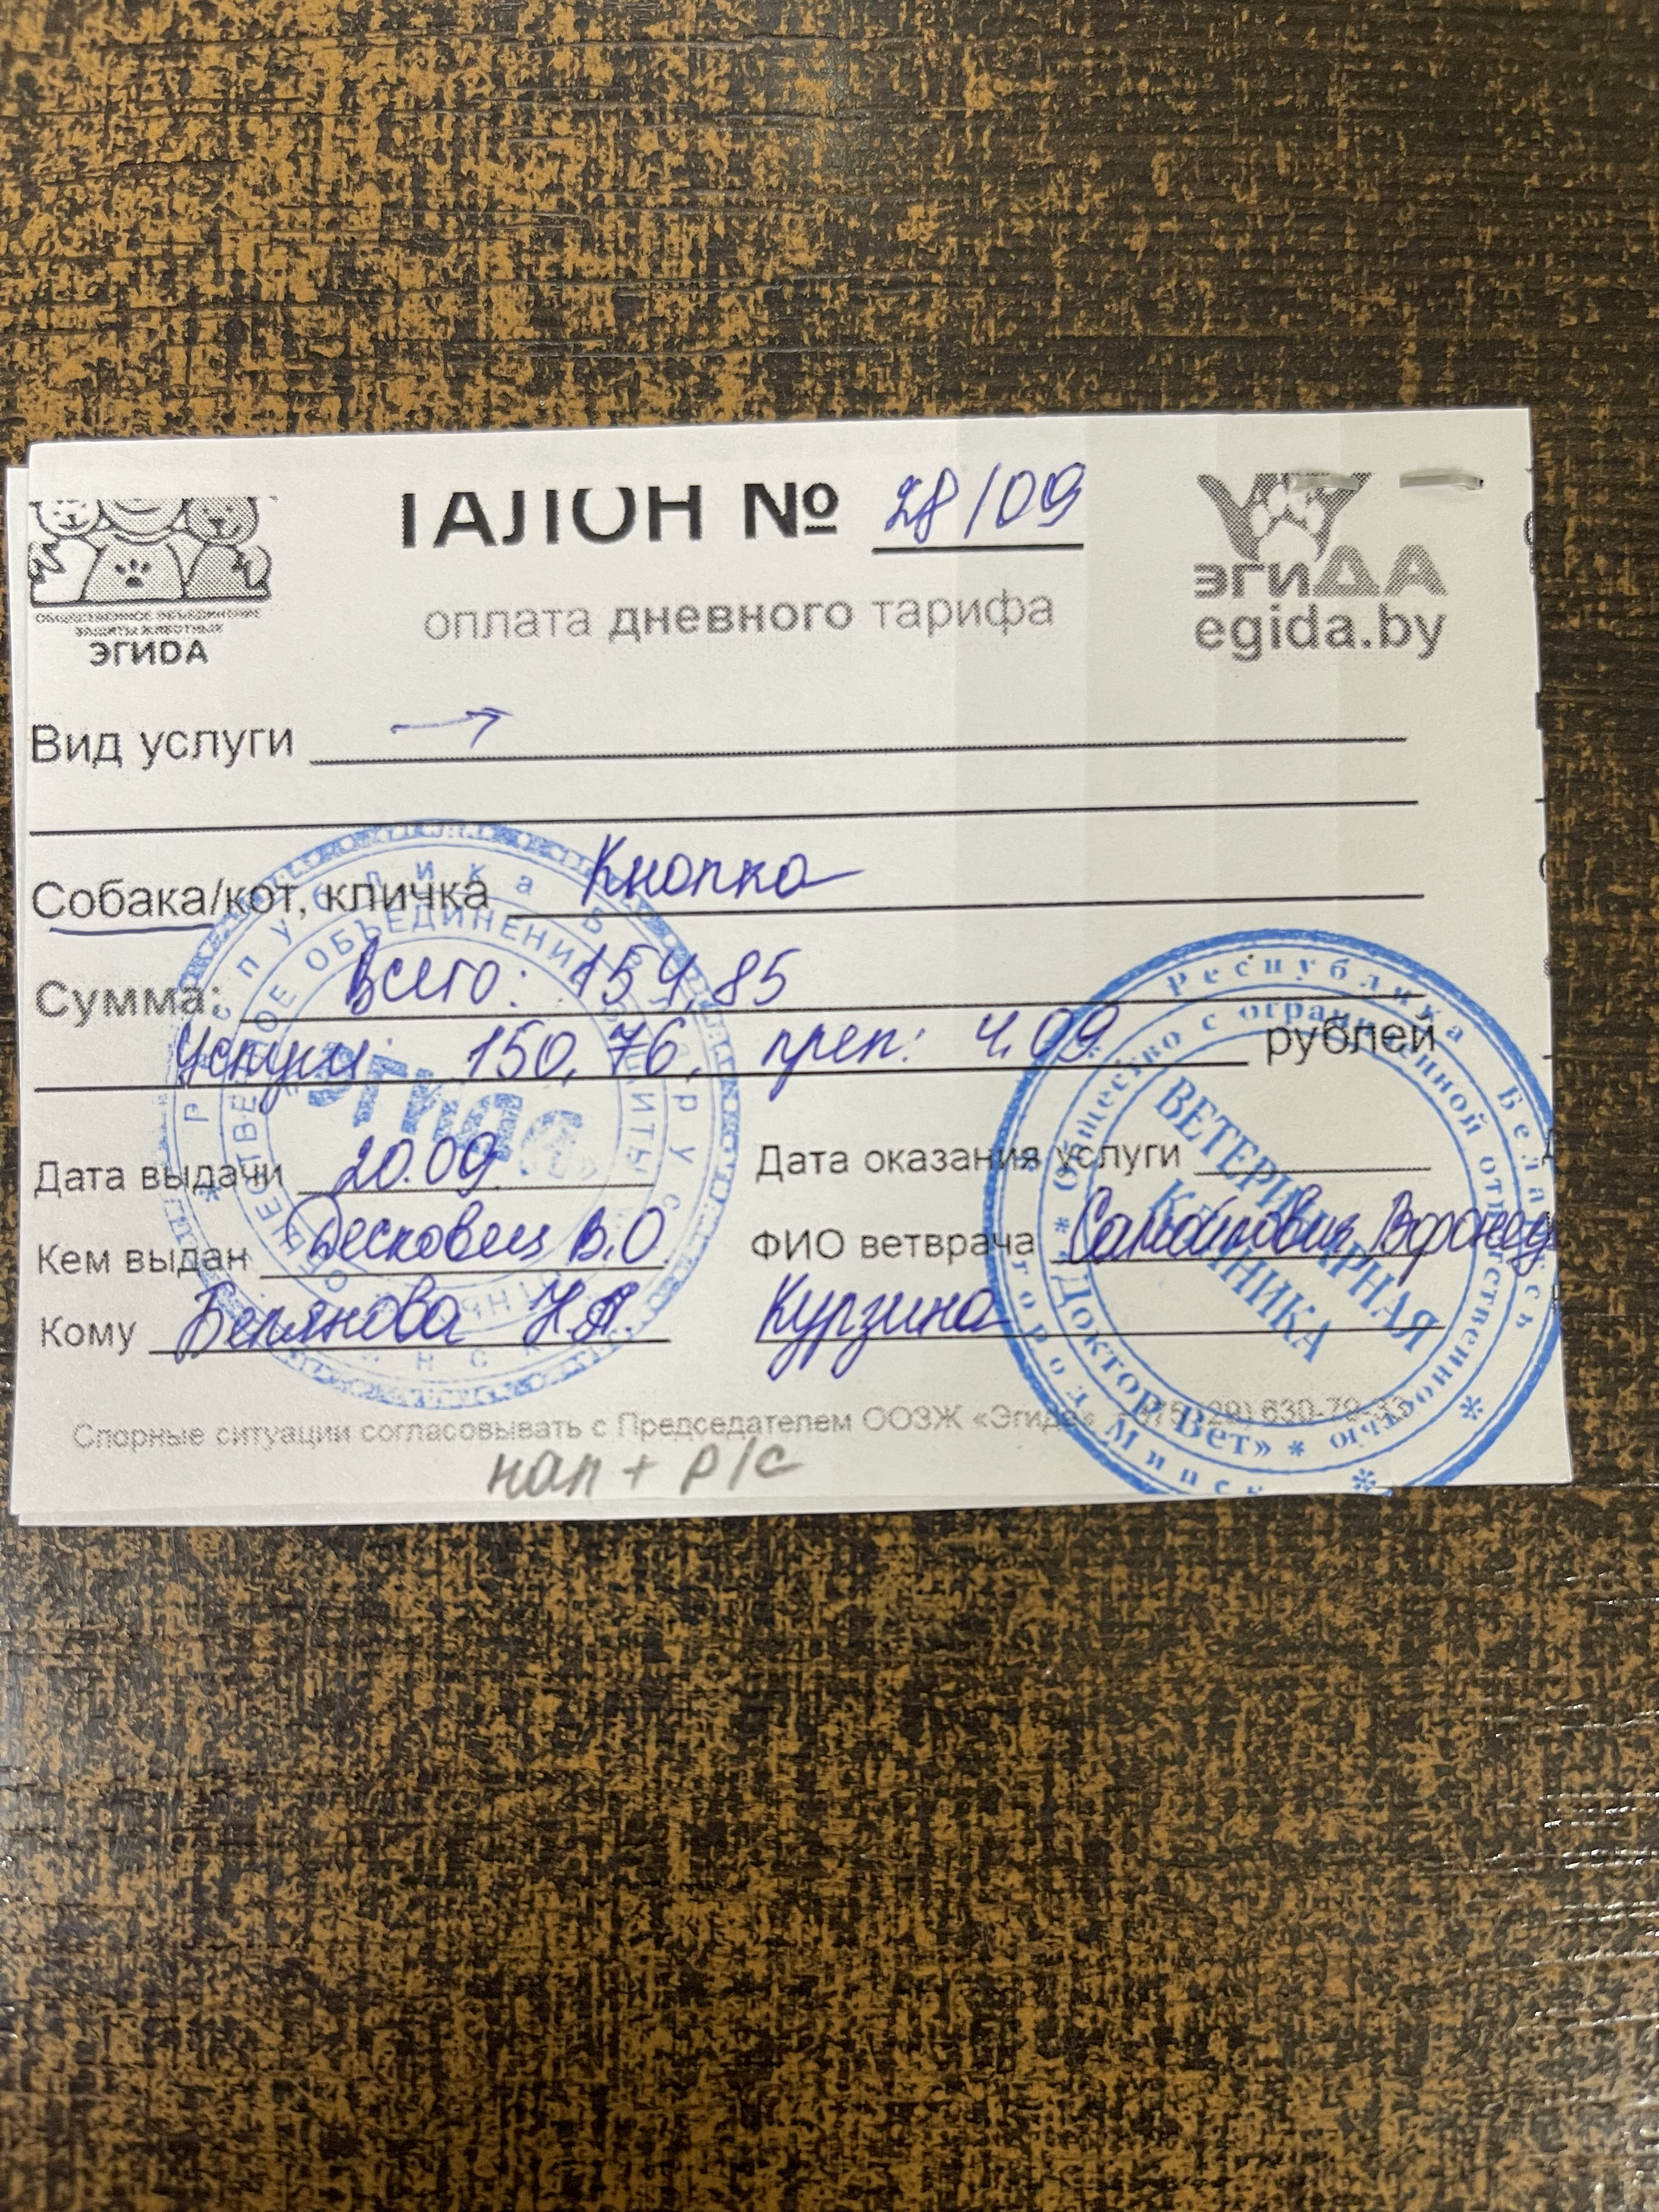 ТАЛОН № 28/09
оплата дневного тарифа
ОБЩЕСТВЕННОЕ ОБЪЕДИНЕНИЕ
ЗАЩИТЫ ЖИВОТНЫХ
ЭГИДА
ЭГИДА
egida.by
Вид услуги →
Собака/кот, кличка Кнопка
Сумма: Всего: 154,85
Услуги: 150,76, преп: 4.09 рублей
Дата выдачи 20.09.
Дата оказания услуги
Кем выдан Песковец В.О
ФИО ветврача
Кому Белянова Н.А.
Курзина
Спорные ситуации согласовывать с Председателем ООЗЖ «Эгида» (29) 630-79-33
нал + р/с
Республика Беларусь
ОБЩЕСТВЕННОЕ ОБЪЕДИНЕНИЕ ЗАЩИТЫ
«Эгида»
Республика Беларусь
Общество с ограниченной ответственностью
«ДокторВет»
город Минск
ВЕТЕРИНАРНАЯ
КЛИНИКА